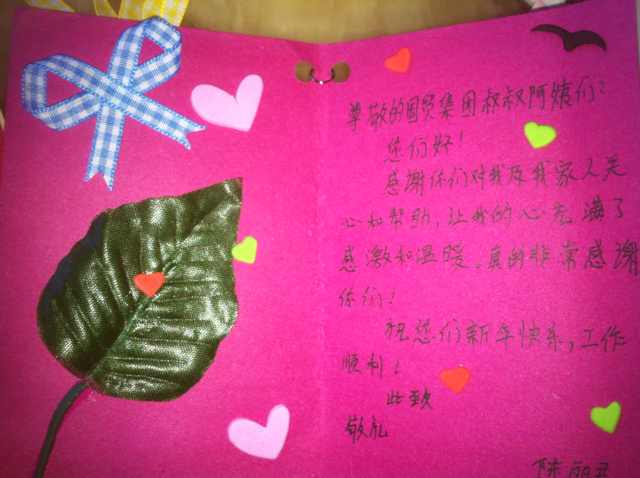 尊敬的国贸集团叔叔阿姨们：
您们好！
感谢你们对我及我家人关
心和帮助，让我的心充满了
感激和温暖。真的非常感谢
你们！
祝您们新年快乐，工作
顺利！
此致
敬礼
陈丽丑